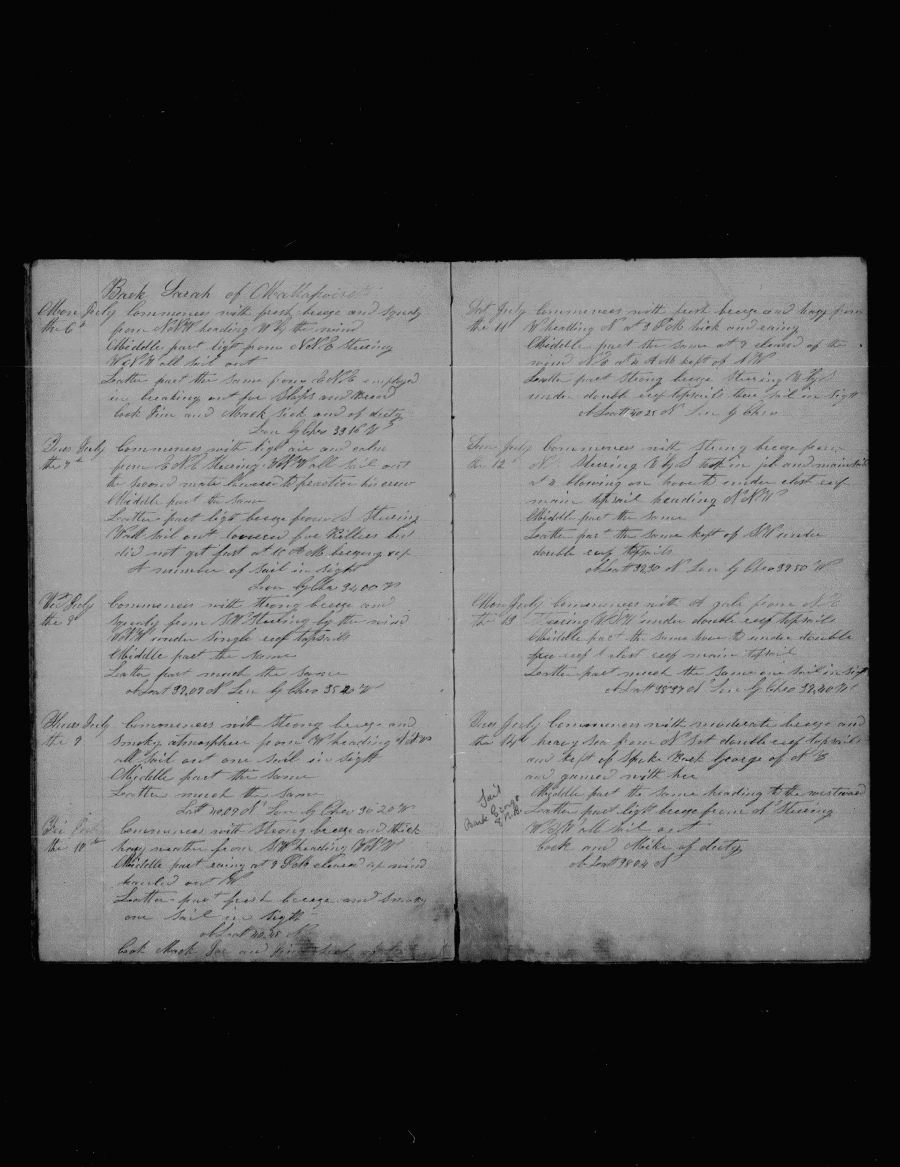 Bark Sarah of Mattapoisett
Mon July Commences with fresh breeze and squaly
the 6th from NNW heading W by the wind
Middle part light from NNE stering
WNW all sail out
Latter part the same from ENE employed
in breaking out for Slops and bread
Cook Jim and Mark Sick and of duty
Lon by Chro 33.16 W
Tues July Commences with ligh airs and calm
the 7th from ENE steering WNW all sail out
the second mate lowered to practice his crew
Middle part the same
Latter part ligt breeze from S Stering
all sail out lowered for Killers but
did not get fast at 11 AM breezing up
A number of sail in sight
Lon by Chro 34.00 W
Wed July Commences with strong breeze and
the 8 squaly from SW Steering by the wind
under single reef topsails
Middle part the same
Latter part much the same
Latt 39.09 N Lon by Chro 35 20 W
Thurs July Commences with strong breeze and
the 9 Smoky atmosphere from W heading
all sail out one sail in sight
Middle part the same
Latter much the same
Latt 40.09 N Lon by Chro 36 20 W
Fri July Commences with strong breeze and thick
the 10th hazy weather from SW heading WNW
Middle part raing at 8 PM cleard up wind
hauled out W
Latter part fresh breeze and
one sail in sigth
Latt 40.45 N
Cook Mark Joe and Jim sick
Sat July Commences with fresh breeze and hazy from
the 11 W heading N at 3 PM thick and raing
Middle part the same at 8 cleared of the
wind NE at 4 AM kept of NW
Latter part strong breeze Steering W by S
under double reef topsails two sail in sigth
Latt 40 25 N Lon by Chro
Sun July Commences with strong breeze from
the 12 N Steering W by S took in jib and mainsail
at 4 blowing on hove to under clost reef
main topsail heading NNW
Middle part the same
Latter part the same kept of NW under
double reef topsails
Latt 39.30 N Lon by Chro 39 50 W
Mon July Commences with A gale from NE
the 13 Steering WSW under double reef topsails
Middle part the same hove to under double
reef clost reef main topsail
Latter part much the same one sail in sigt
Latt 38 37 N Lon by Chro 39.40 W
Tues July Commences with moderate breeze and
the 14th heavy sea from N Set double reef topsails
and kept of Spoke Bark George of N B
and gamed with her
Middle part the same heading to the westward
Sail
Bark George
of N.B.
Latter part light breeze from N Stering
all sail out
Cook and Mike of duty
Latt 38 04 N